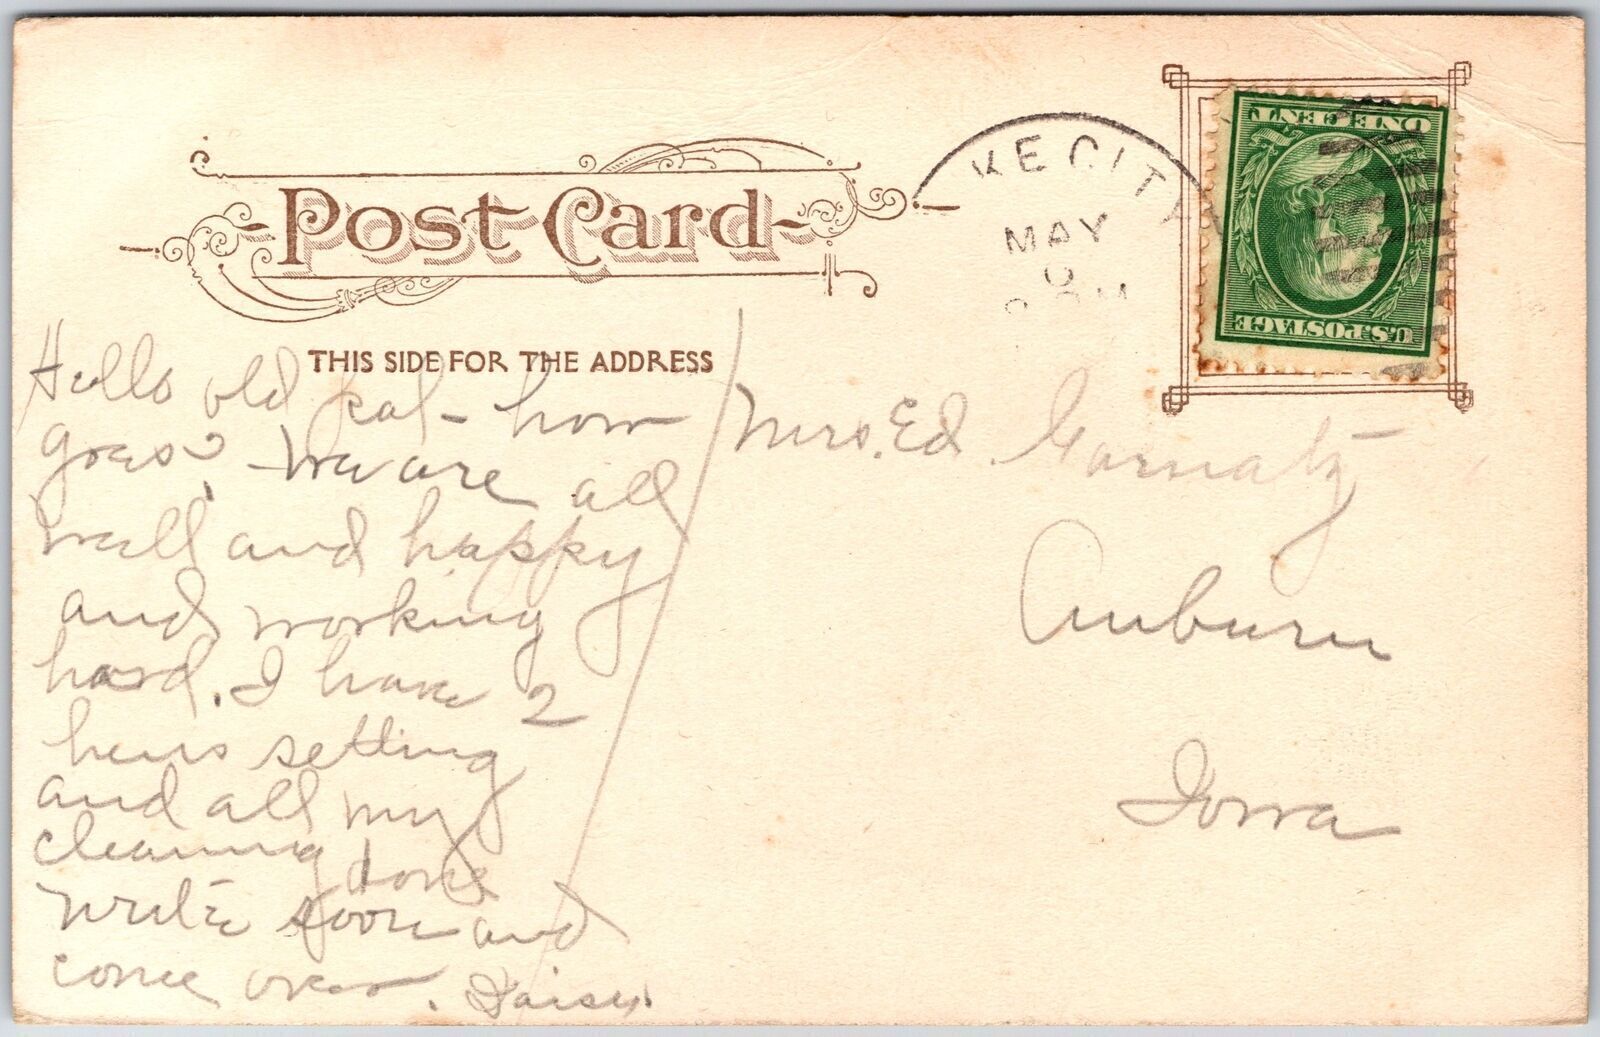 POST CARD
THIS SIDE FOR THE ADDRESS
KE CITY
MAY
ONE CENT
U.S. POSTAGE
Hello old pal - how
goes? We are all
well and happy
and working
hard. I have 2
hens setting
and all my
cleaning done
write soon and
come over. Daisy.
Mrs. Ed. Garnatz
Auburn
Iowa